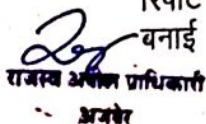 रिपोर्ट
बनाई
राजस्व अपील प्राधिकारी
अजमेर